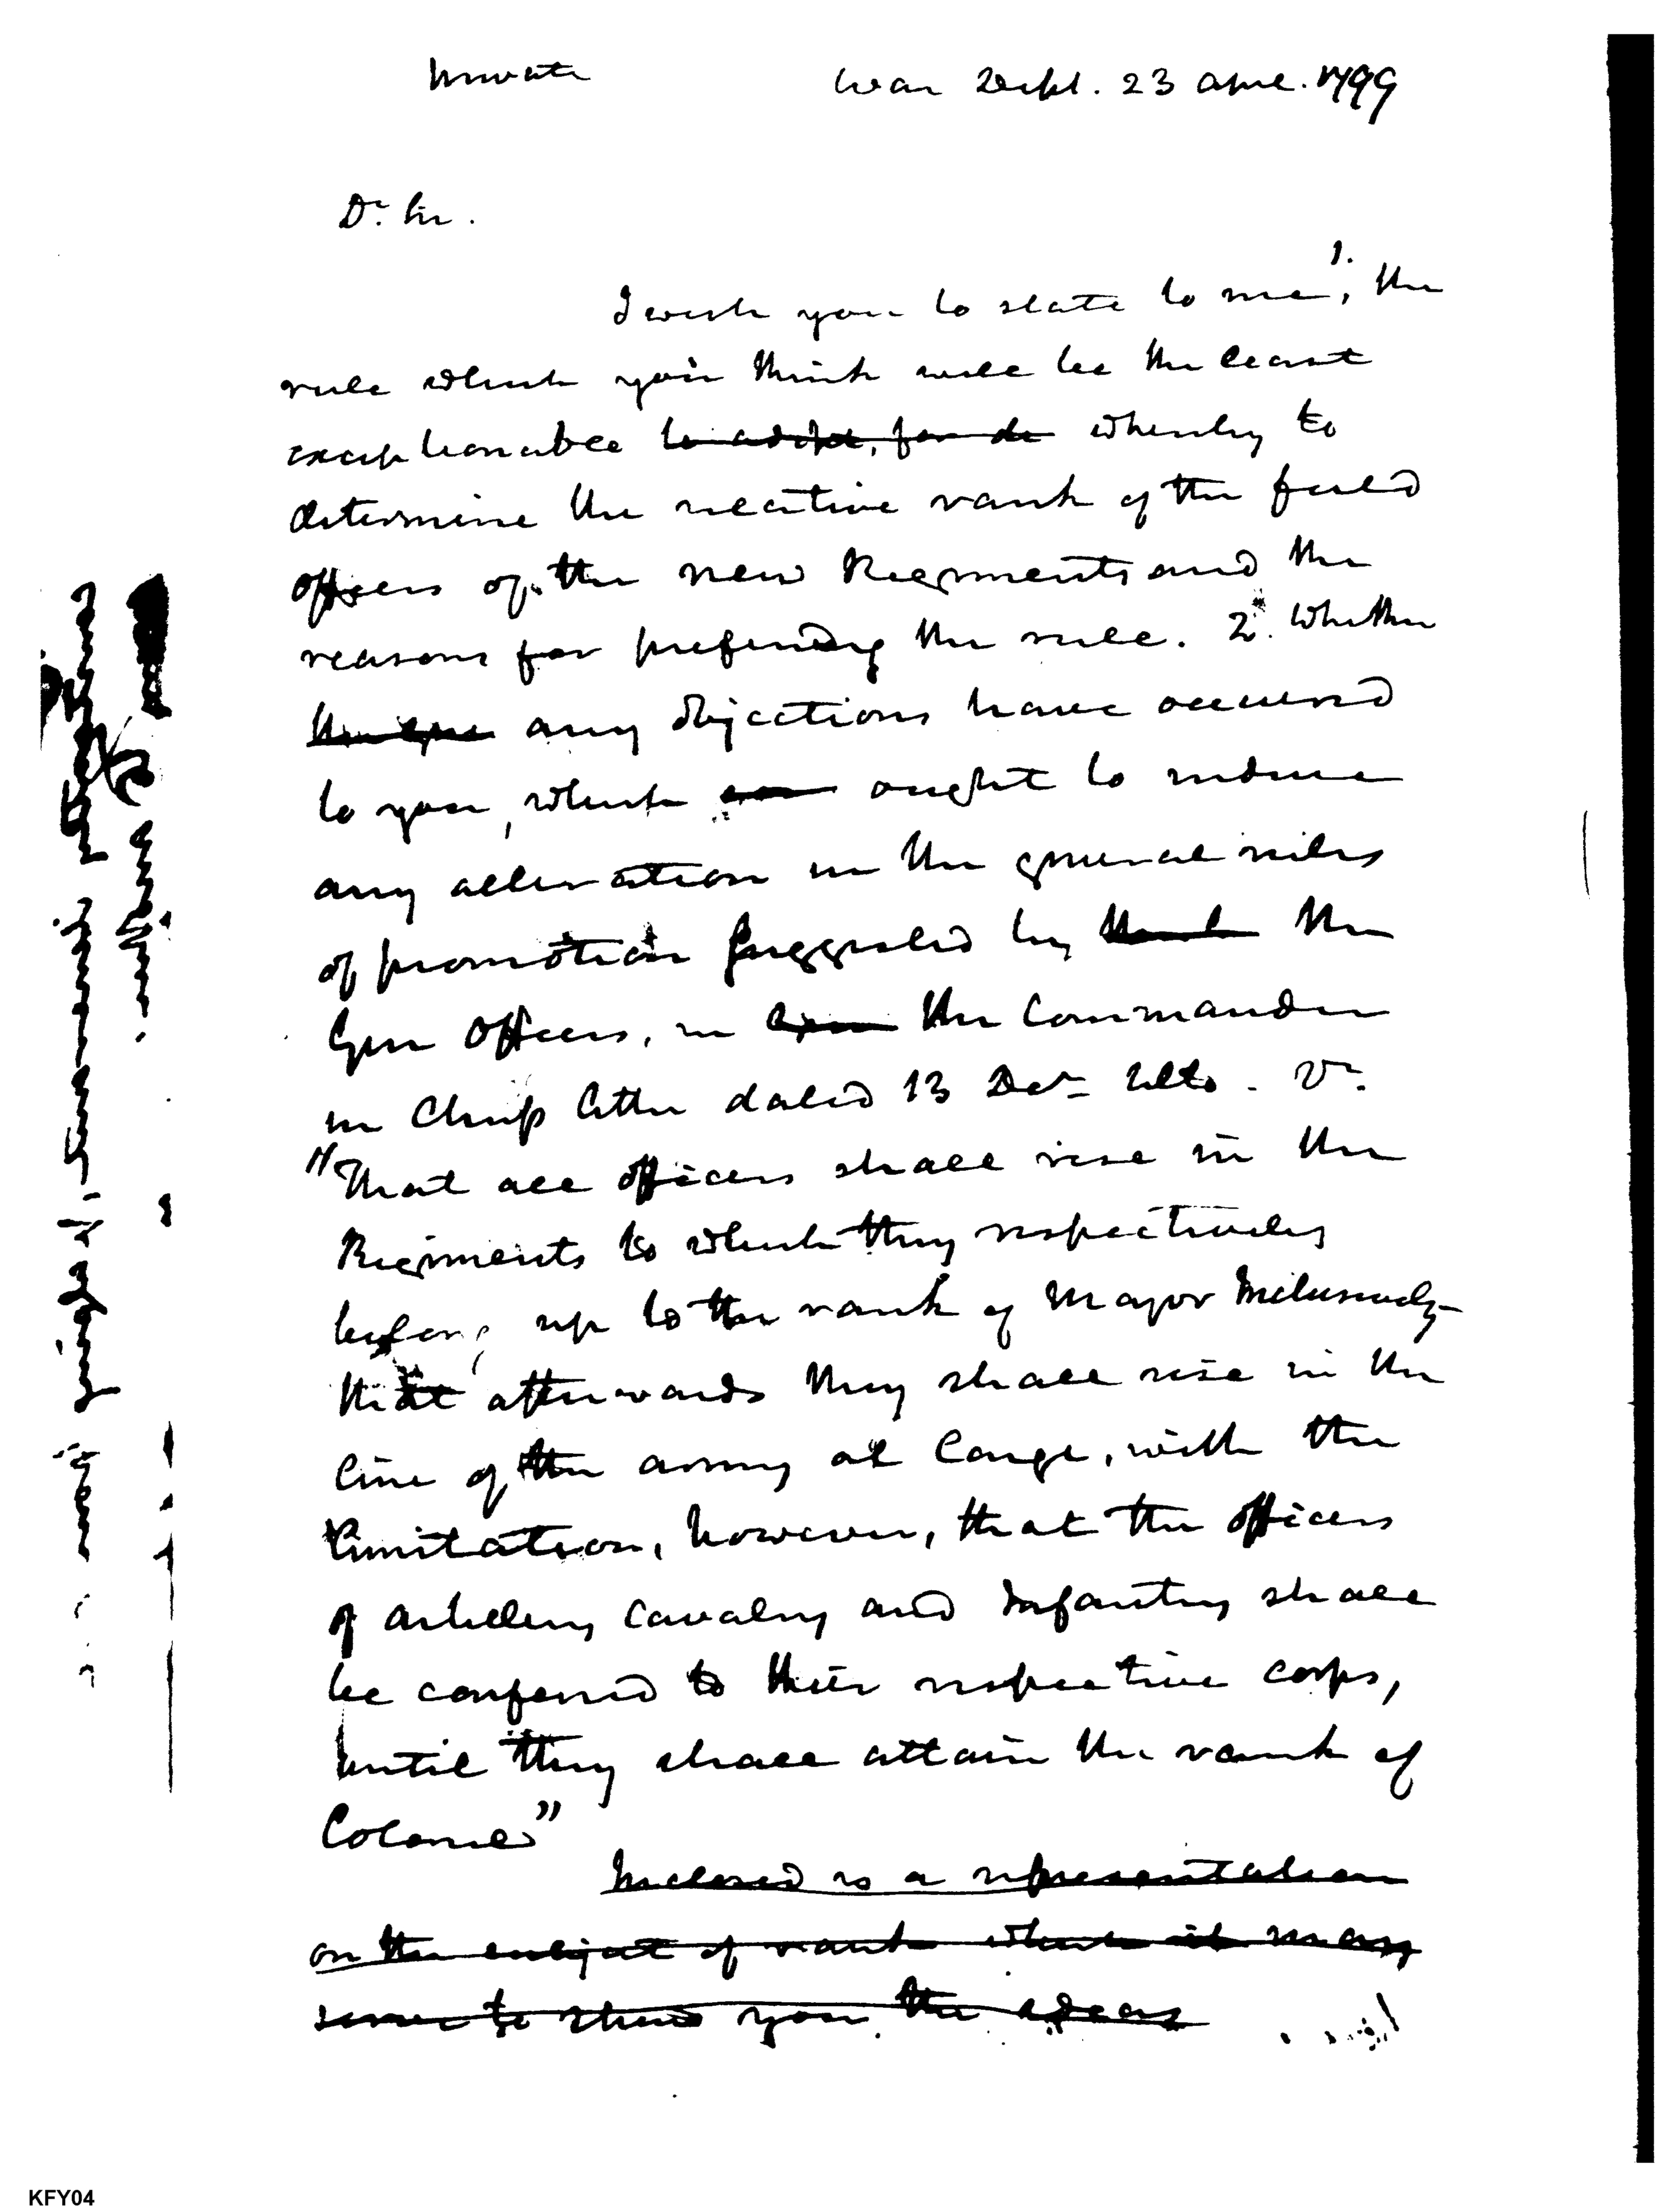 Private War Dept. 23 April. 1799
Dr. Sir.
I wish you to state to me, 1. the
rule which you think will be the least
exceptionable to adopt, for de whereby to
determine the relative rank of the field
officers of the new Regiments and the
reasons for prefering the rule. 2. Whether
any objections have occurred
to you, which ought to induce
any alteration in the general rules
of promotion suggested by the
Gen Officers, in the Commander
in Chiefs letter dated 13 Decr. Ulto. Vr.
"That all officers shall rise in the
Regiments to which they respectively
belong, up to the rank of Major Inclusively
that afterwards they shall rise in the
line of the army at large, with the
limitation, however, that the officers
of artillery cavalry and Infantry shall
be confined to their respective corps,
until they shall attain the rank of
Colonel"
Inclosed is a representation
on the subject of rank which it may
serve to shew you the ideas
KFY04